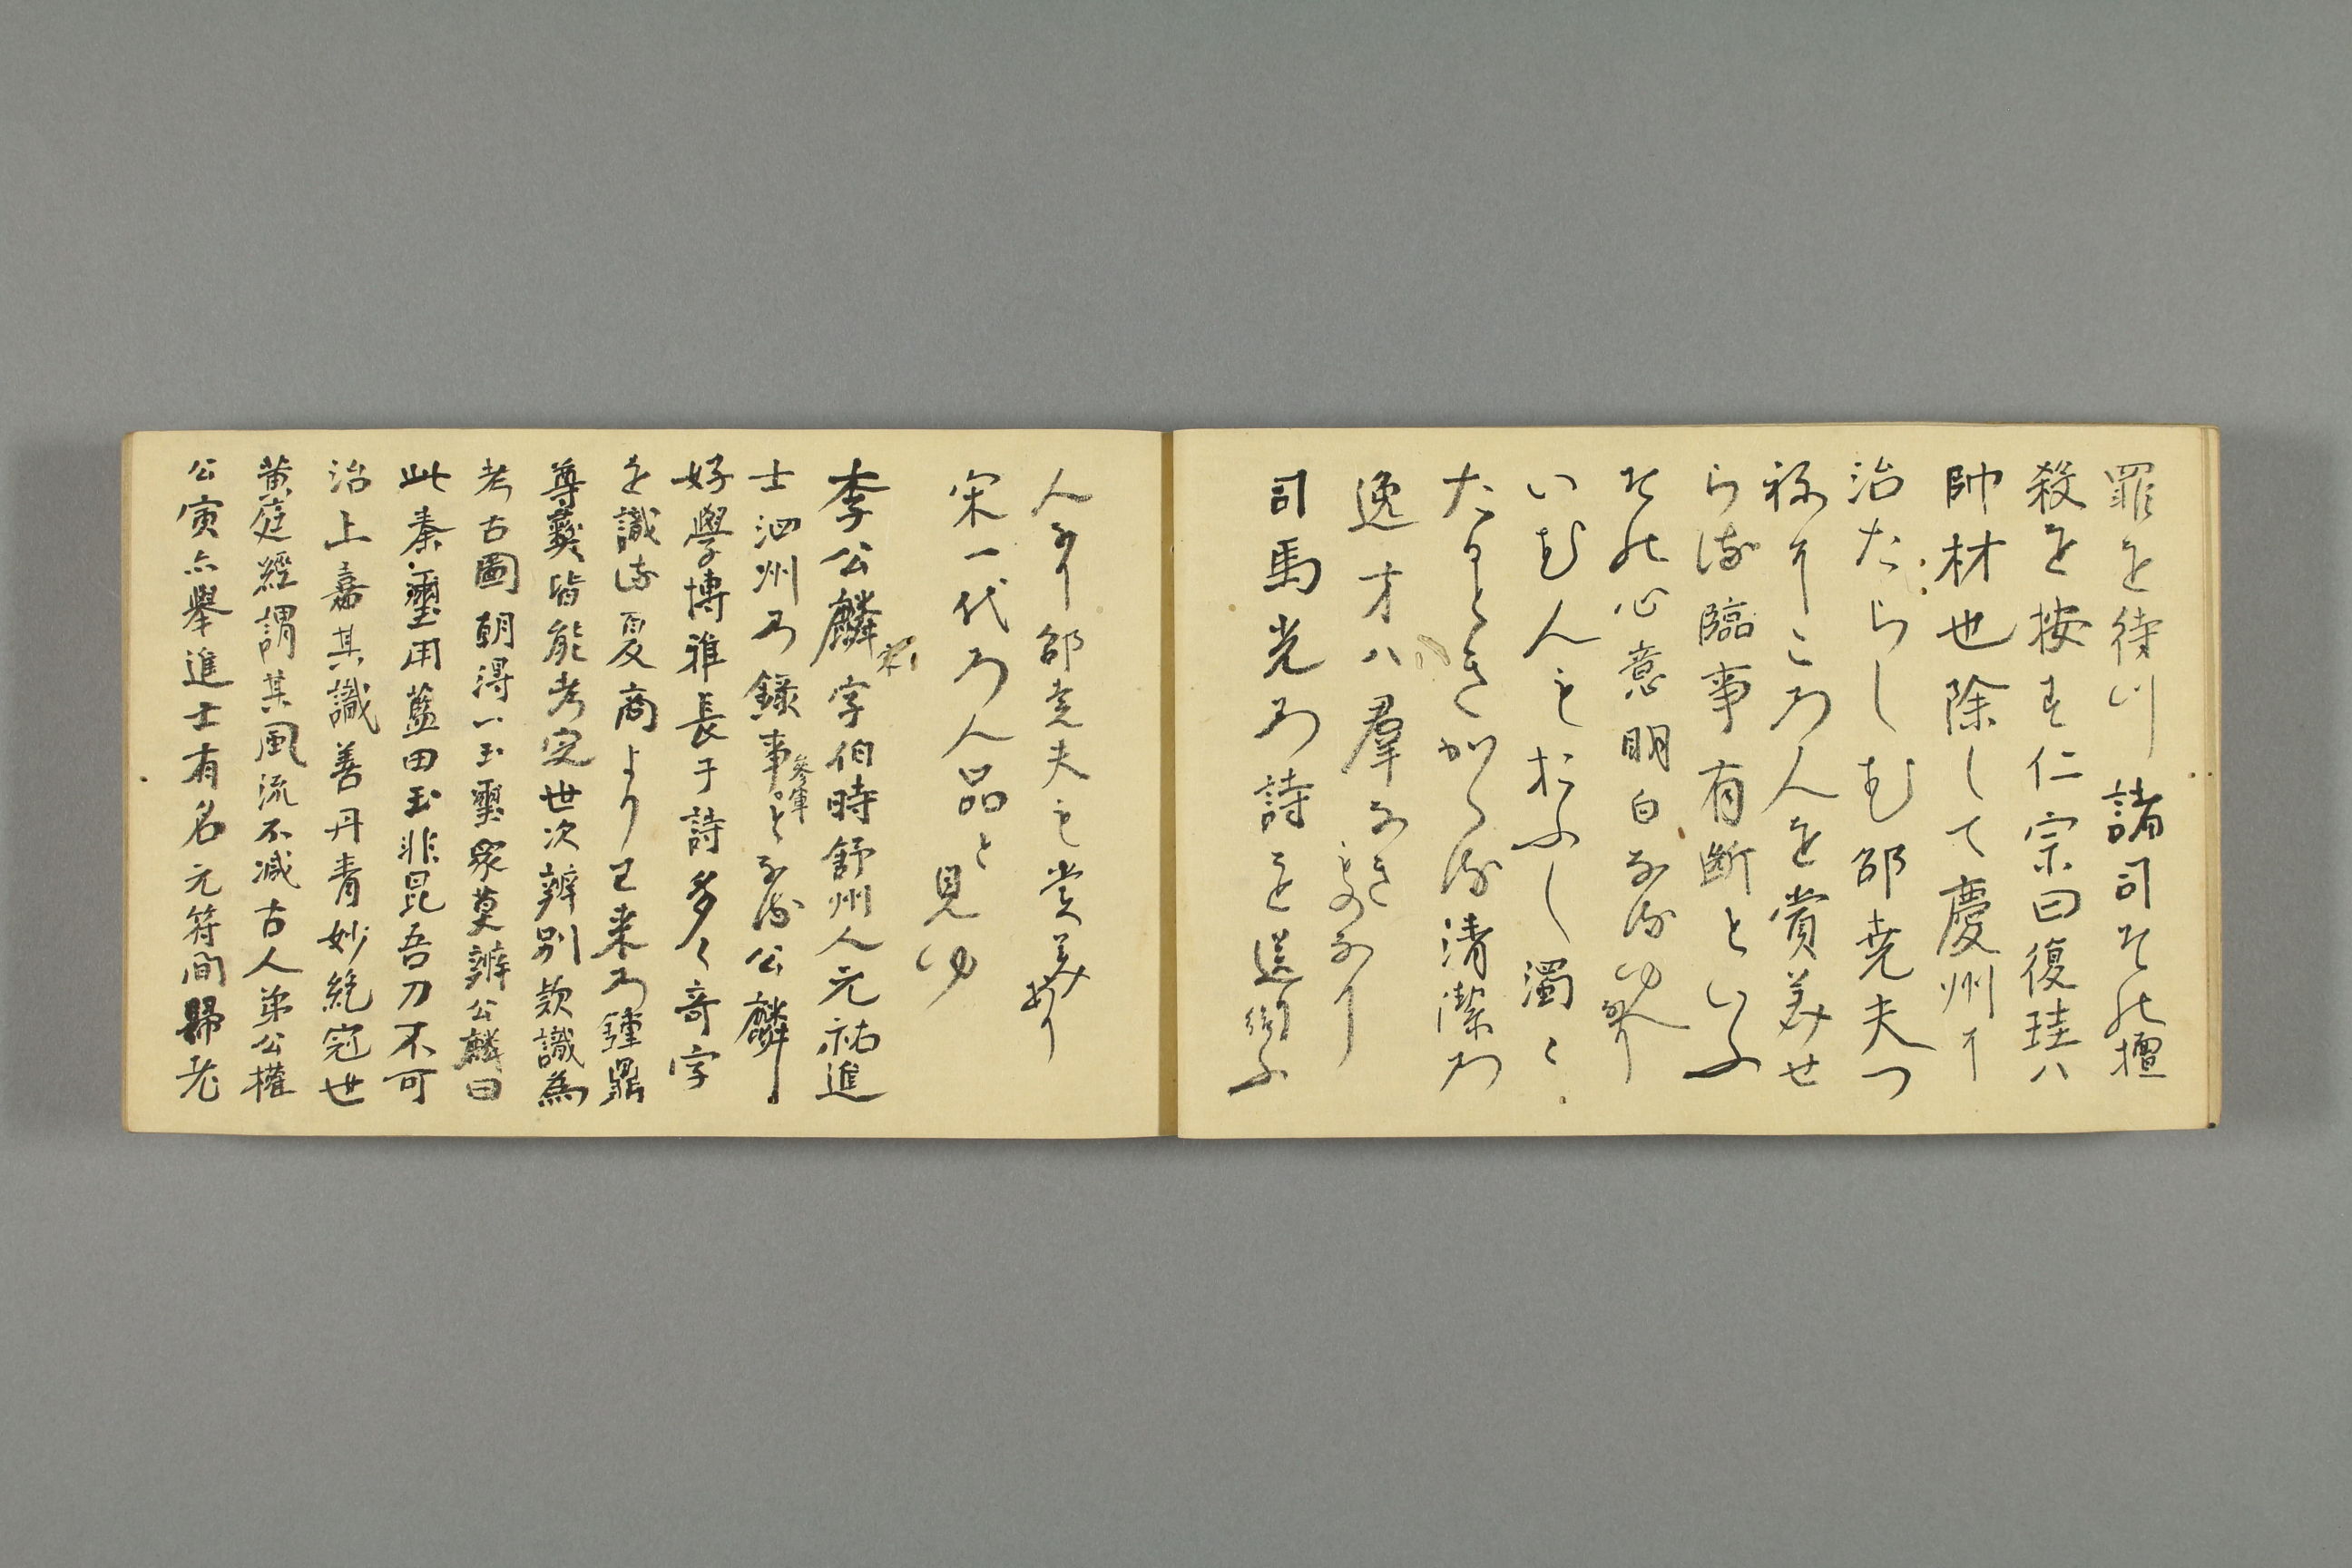 罪を待川諸司それ擅
殺を按す仁宗曰復珪ハ
帥材也除して慶州に
治たらしむ邵堯夫つ
ねにこの人を賞美せ
らる臨事有断といふ
それ心意明白なるゆへなり
いむ人もおふし濁
たりときからる清潔の
逸才ハ羣なきものなり
司馬光の詩を送
人なり邵堯夫も賞美あり
宋一代の人品と見ゆ
李公麟字伯時舒州人元祐進
士泗州の録事参軍となる公麟
好學博雅長于詩多く奇字
を識る夏商より已来の鍾鼎
尊彝皆能考定世次辨別欵識為
考古圖朝得一玉璽衆莫辨公麟曰
此秦璽用藍田玉非昆吾刀不可
治上嘉其識善丹青妙絶冠世
黄庭經謂其風流不减古人弟公權
公寅亦舉進士有名元符間歸老